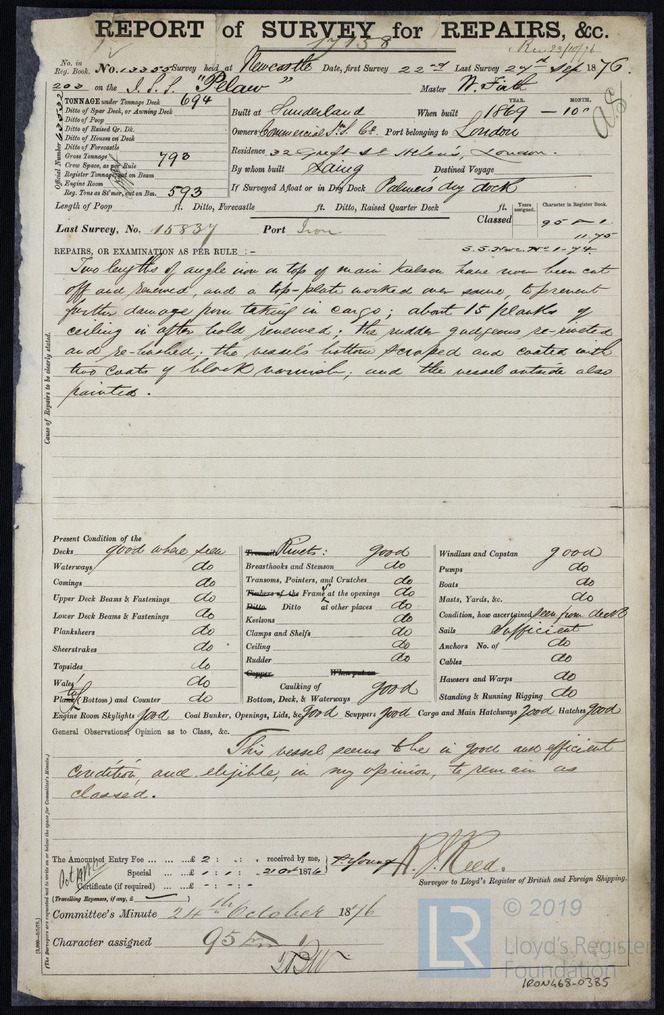 REPORT of SURVEY for REPAIRS, &c.
17138
Rec 23/10/76
No. in Reg. Book. No. 13355 Survey held at Newcastle Date, first Survey 22nd Last Survey 27th Sep 1876.
203 on the I.S.S. "Pelaw" Master W. Firth
TONNAGE under Tonnage Deck 694
Ditto of Spar Deck, or Awning Deck
Ditto of Poop
Ditto of Raised Qr. Dk.
Ditto of Houses on Deck
Ditto of Forecastle
Gross Tonnage 793
Crew Space, as per Rule
Register Tonnage, cut on Beam
Engine Room
Reg. Tons as St'mer, cut on Bm. 593
Official Number
YEAR. MONTH.
Built at Sunderland When built 1869 - 10
Owners Commercial S. S. Co. Port belonging to London
Residence 32 Great St Helen's, London.
By whom built Laing Destined Voyage
If Surveyed Afloat or in Dry Dock Palmers dry dock
Length of Poop ft. Ditto, Forecastle ft. Ditto, Raised Quarter Deck ft.
Classed Years assigned. Character in Register Book.
95 1
11.75
Last Survey, No. 15837 Port Iron
S.S. Nwc. No 1-74.
REPAIRS, OR EXAMINATION AS PER RULE :—
Two lengths of angle iron on top of main keelson have now been cut
off and renewed, and a top-plate worked over same, to prevent
further damage from taking in cargo; about 15 planks of
ceiling in after hold renewed; the rudder gudgeons re-riveted
and re-bushed; the vessel's bottom scraped and coated with
two coats of black varnish; and the vessel outside also
painted.
Cause of Repairs to be clearly stated.
Present Condition of the
Decks good where seen
Waterways do
Comings do
Upper Deck Beams & Fastenings do
Lower Deck Beams & Fastenings do
Planksheers do
Sheerstrakes do
Topsides do
Wales do
Plank (Bottom) and Counter do
Treenails Rivets: good
Breasthooks and Stemson do
Transoms, Pointers, and Crutches do
Timbers of the Frame at the openings do
Ditto Ditto at other places do
Keelsons do
Clamps and Shelfs do
Ceiling do
Rudder do
Copper When put on
Caulking of Bottom, Deck, & Waterways good
Windlass and Capstan good
Pumps do
Boats do
Masts, Yards, &c. do
Condition, how ascertained seen from deck
Sails Sufficient
Anchors No. of do
Cables do
Hawsers and Warps do
Standing & Running Rigging do
Engine Room Skylights good Coal Bunker, Openings, Lids, &c. good Scuppers good Cargo and Main Hatchways good Hatches good
General Observations, Opinion as to Class, &c.
This vessel seems to be in good and efficient
condition, and eligible, in my opinion, to remain as
classed.
The Amount of Entry Fee ... ... ...£ 2 : - : - received by me,
Special ... ...£ - : - : - 21 Oct 1876 P. Young
Certificate (if required) ... ...£ - : - : -
(Travelling Expenses, if any, £ )
R. J. Reed.
Surveyor to Lloyd's Register of British and Foreign Shipping.
Committee's Minute 24th October 1876
Character assigned 95 1
(The Surveyors are requested not to write on or below the space for Committee's Minute.)
LR © 2019
Lloyd's Register
Foundation
IRON468-0385